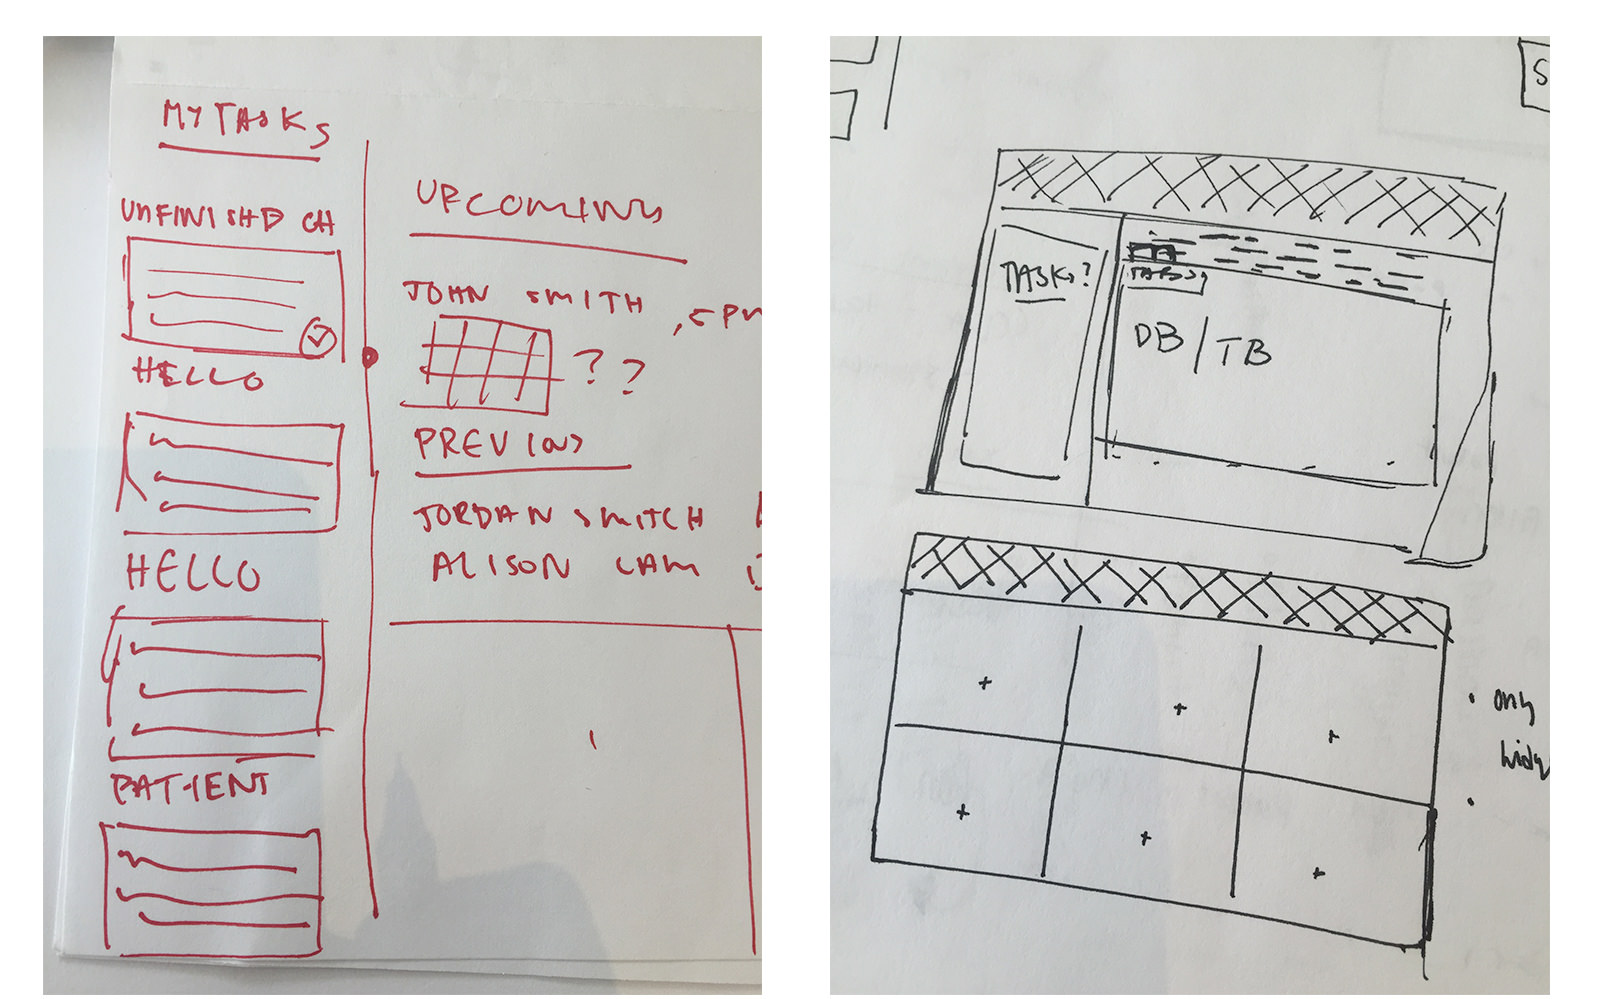 MY TASKS
UNFINISHD CH
HELLO
HELLO
PATIENT
UPCOMING
JOHN SMITH, 5 PM
? ?
PREVIOUS
JORDAN SMITCH
ALISON LAM
S
TASKS?
TABS
DB/TB
+ + +
+ + +
• only
•